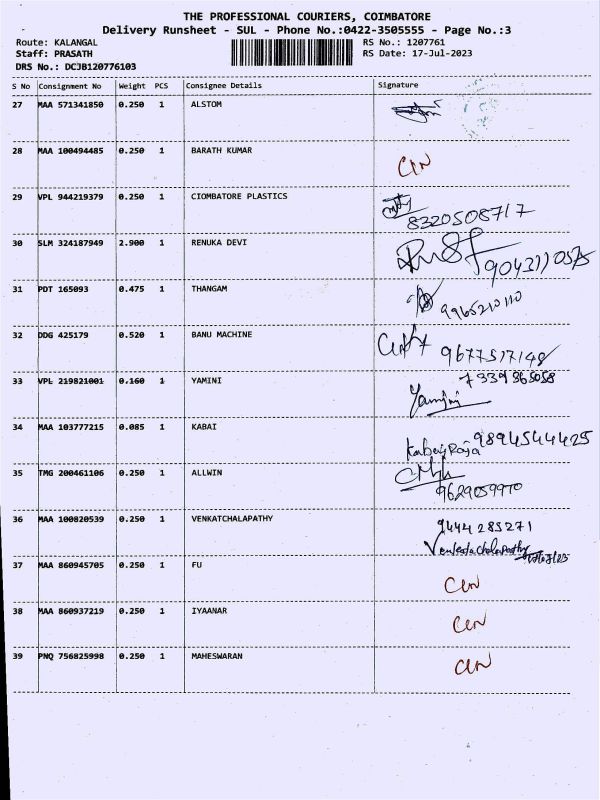 THE PROFESSIONAL COURIERS, COIMBATORE
Delivery Runsheet - SUL - Phone No.:0422-3505555 - Page No.:3
Route: KALANGAL RS No.: 1207761
Staff: PRASATH RS Date: 17-Jul-2023
DRS No.: DCJB120776103
S No Consignment No Weight PCS Consignee Details Signature
27 MAA 571341850 0.250 1 ALSTOM
28 MAA 100494485 0.250 1 BARATH KUMAR
29 VPL 944219379 0.250 1 CIOMBATORE PLASTICS
8320508717
30 SLM 324187949 2.900 1 RENUKA DEVI
9043110575
31 PDT 165093 0.475 1 THANGAM
9965210110
32 DDG 425179 0.520 1 BANU MACHINE
9677517148
33 VPL 219821001 0.160 1 YAMINI 7339365058
Yamini
34 MAA 103777215 0.085 1 KABAI
9894544425
35 TMG 200461106 0.250 1 ALLWIN
9629059970
36 MAA 100820539 0.250 1 VENKATCHALAPATHY
9444285271
Venkatachalapathy
37 MAA 860945705 0.250 1 FU
38 MAA 860937219 0.250 1 IYAANAR
39 PNQ 756825998 0.250 1 MAHESWARAN